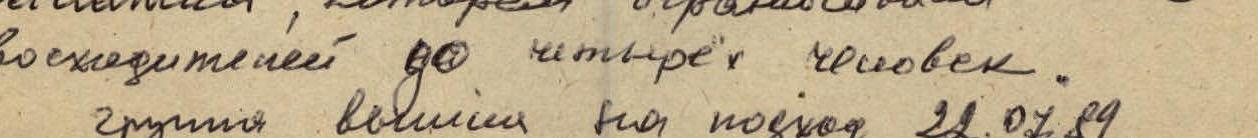 которая ограничила
восходителей до четырёх человек.
группа вышла на подход 22.07.89